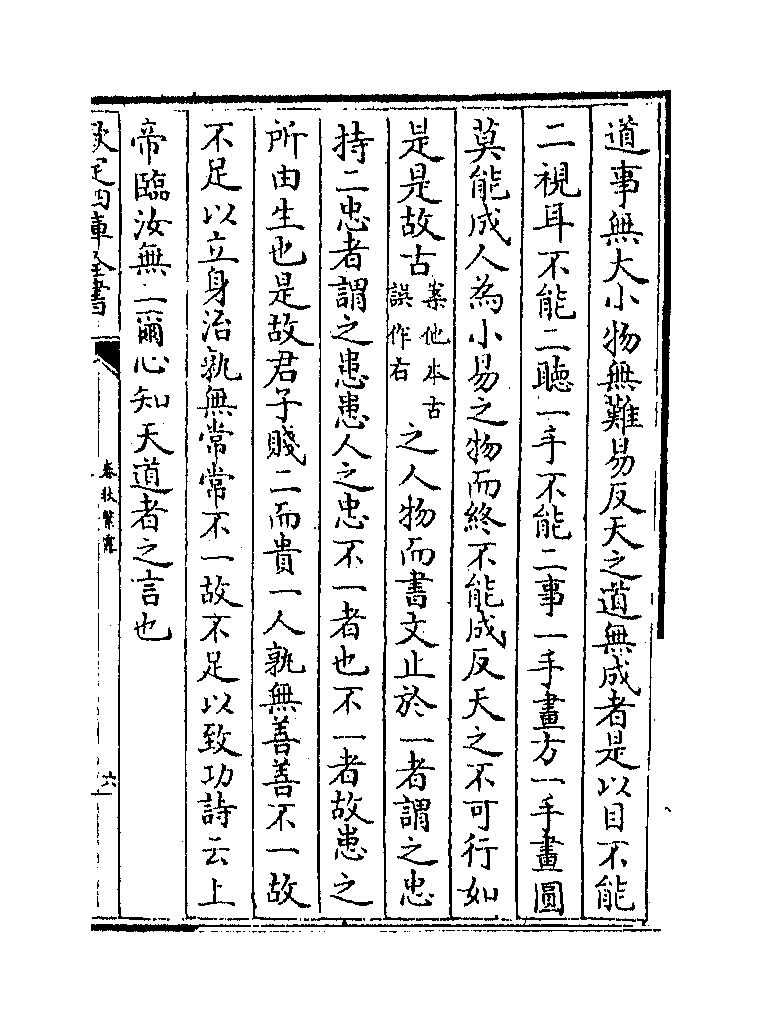 道事無大小物無難易反天之道無成者是以目不能
二視耳不能二聽一手不能二事一手畫方一手畫圓
莫能成人為小易之物而終不能成反天之不可行如
是是故古案他本古誤作右之人物而書文止於一者謂之忠
持二忠者謂之患患人之忠不一者也不一者故患之
所由生也是故君子賤二而貴一人孰無善善不一故
不足以立身治孰無常常不一故不足以致功詩云上
帝臨汝無二爾心知天道者之言也
欽定四庫全書
春秋繁露
六